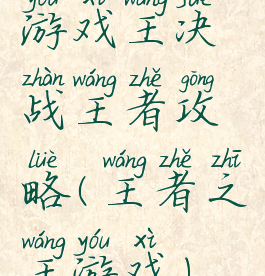 yóu xì wáng jué
游戏王决
zhàn wáng zhě gōng
战王者攻
lüè wáng zhě zhī
略(王者之
wáng yóu xì
王游戏)